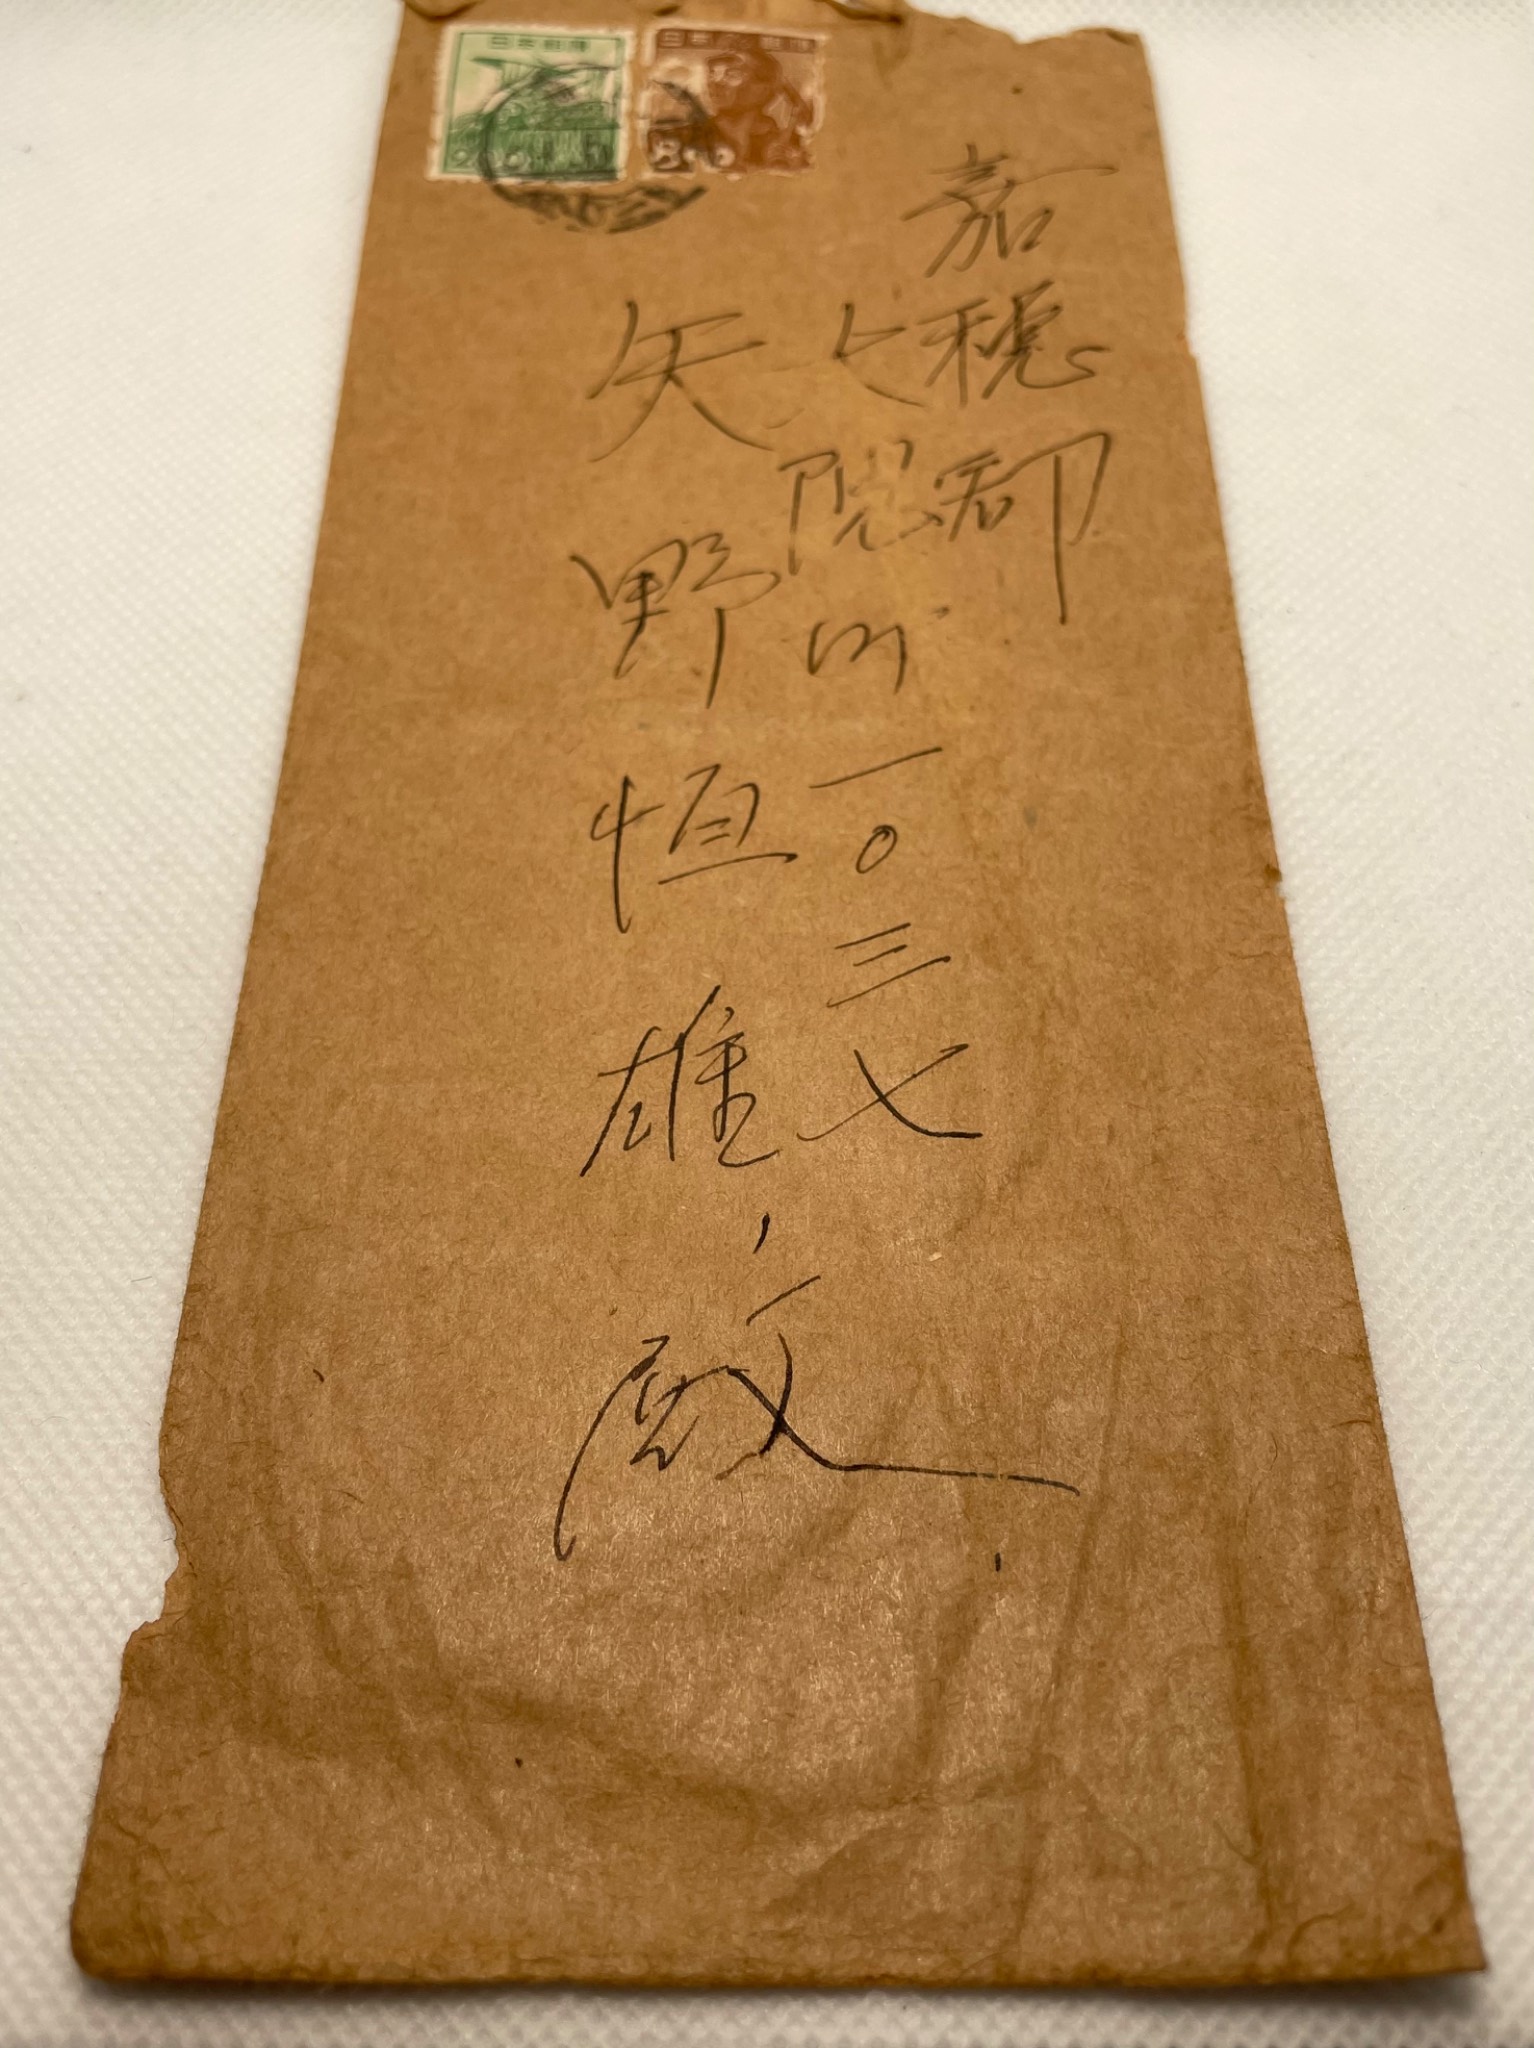 日本郵便
日本郵便
嘉穂郡
大隈町一〇三七
矢野恒雄殿